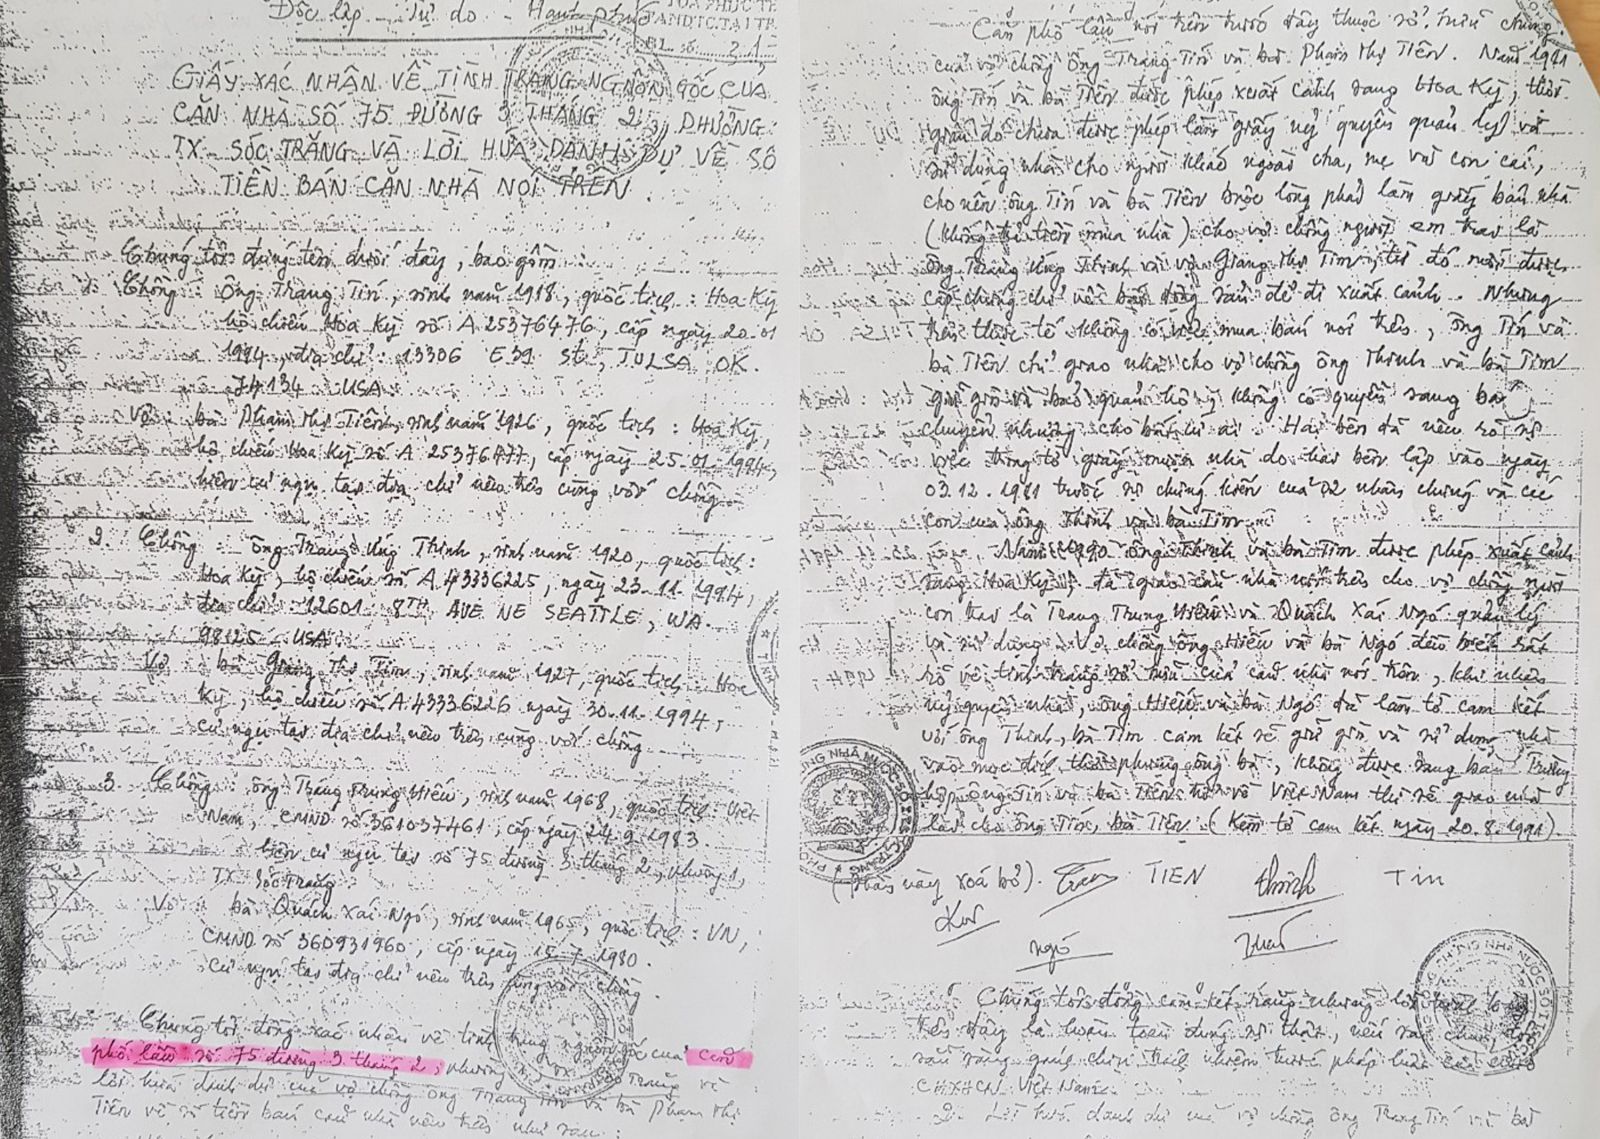 Độc lập - Tự do - Hạnh phúc
GIẤY XÁC NHẬN VỀ TÌNH TRẠNG NGUỒN GỐC CỦA
CĂN NHÀ SỐ 75 ĐƯỜNG 3 THÁNG 2, PHƯỜNG
TX SÓC TRĂNG VÀ LỜI HỨA DANH DỰ VỀ SỐ
TIỀN BÁN CĂN NHÀ NÓI TRÊN.
Chúng tôi đứng tên dưới đây, bao gồm:
Chồng: Ông Trang Tín, sinh năm 1918, quốc tịch: Hoa Kỳ
hộ chiếu Hoa Kỳ số A 25376476, cấp ngày 20.01
1994, địa chỉ: 13306 E 39 St, TULSA OK.
74134 USA
Vợ: bà Phạm Thị Tiên, sinh năm 1926, quốc tịch: Hoa Kỳ,
hộ chiếu Hoa Kỳ số A 25376477, cấp ngày 25.01.1994,
hiện cư ngụ tại địa chỉ nêu trên cùng với chồng
2. Chồng: Ông Trang Ứng Thịnh, sinh năm 1920, quốc tịch:
Hoa Kỳ, hộ chiếu số A 43336225, ngày 23.11.1994,
địa chỉ: 12601 8TH AVE NE SEATTLE, WA.
98125 USA
Vợ: bà Giang Thị Tim, sinh năm 1927, quốc tịch: Hoa
Kỳ, hộ chiếu số A 43336226 ngày 30.11.1994,
cư ngụ tại địa chỉ nêu trên cùng với chồng
3. Chồng: ông Trang Trung Hiếu, sinh năm 1968, quốc tịch: Việt
Nam, CMND số 361037461, cấp ngày 24.9.1983.
Hiện cư ngụ tại số 75 đường 3 tháng 2, phường 1,
TX Sóc Trăng
Vợ: bà Quách Xái Ngó, sinh năm 1965, quốc tịch: VN,
CMND số 360931960, cấp ngày 15.7.1980.
Cư ngụ tại địa chỉ nêu trên cùng với chồng.
Chúng tôi đồng xác nhận về tình trạng nguồn gốc của căn
phố lầu số 75 đường 3 tháng 2, phường Sóc Trăng và
lời hứa danh dự mà vợ chồng ông Trang Tín và bà Phạm Thị
Tiên về số tiền bán căn nhà nêu trên như sau:
Căn phố lầu nói trên trước đây thuộc sở hữu chung
của vợ chồng ông Trang Tín và bà Phạm Thị Tiên. Năm 1981
ông Tín và bà Tiên được phép xuất cảnh sang Hoa Kỳ, thời
gian đó chưa được phép làm giấy uỷ quyền quản lý và
sử dụng nhà cho người khác ngoài cha, mẹ và con cái,
cho nên ông Tín và bà Tiên buộc lòng phải làm giấy bán nhà
(không thu tiền mua nhà) cho vợ chồng người em trai là
ông Trang Ứng Thịnh và vợ Giang Thị Tim, từ đó mới được
cấp chứng chỉ về bất động sản để đi xuất cảnh. Nhưng
trên thực tế không có việc mua bán nói trên, ông Tín và
bà Tiên chỉ giao nhà cho vợ chồng ông Thịnh và bà Tim
giữ gìn và bảo quản hộ, không có quyền sang bán
chuyển nhượng cho bất cứ ai. Hai bên đã nêu rõ sự
việc trong tờ giấy mướn nhà do hai bên lập vào ngày
03.12.1981 trước sự chứng kiến của 02 nhân chứng và các
con của ông Thịnh và bà Tim.
Năm 1990 ông Thịnh và bà Tim được phép xuất cảnh
sang Hoa Kỳ, đã giao căn nhà nói trên cho vợ chồng người
con trai là Trang Trung Hiếu và Quách Xái Ngó quản lý
và sử dụng. Vợ chồng ông Hiếu và bà Ngó đều biết rất
rõ về tình trạng sở hữu của căn nhà nói trên, khi nhận
uỷ quyền nhà, ông Hiếu và bà Ngó đã làm tờ cam kết
với ông Thịnh, bà Tim cam kết sẽ giữ gìn và sử dụng nhà
vào mục đích thờ phượng ông bà, không được sang bán. Trường
hợp ông Tín và bà Tiên trở về Việt Nam thì sẽ giao nhà
lại cho ông Tín, bà Tiên. (Kèm tờ cam kết ngày 20.8.1991).
(Phần này xoá bỏ). TIEN Thinh Tim
ngó
Chúng tôi đồng cam kết rằng những lời trình bày
trên đây là hoàn toàn đúng sự thật, nếu sai chúng tôi
sẵn sàng gánh chịu trách nhiệm trước pháp luật của nước
CHXHCN Việt Nam.
Lời hứa danh dự mà vợ chồng ông Trang Tín và bà